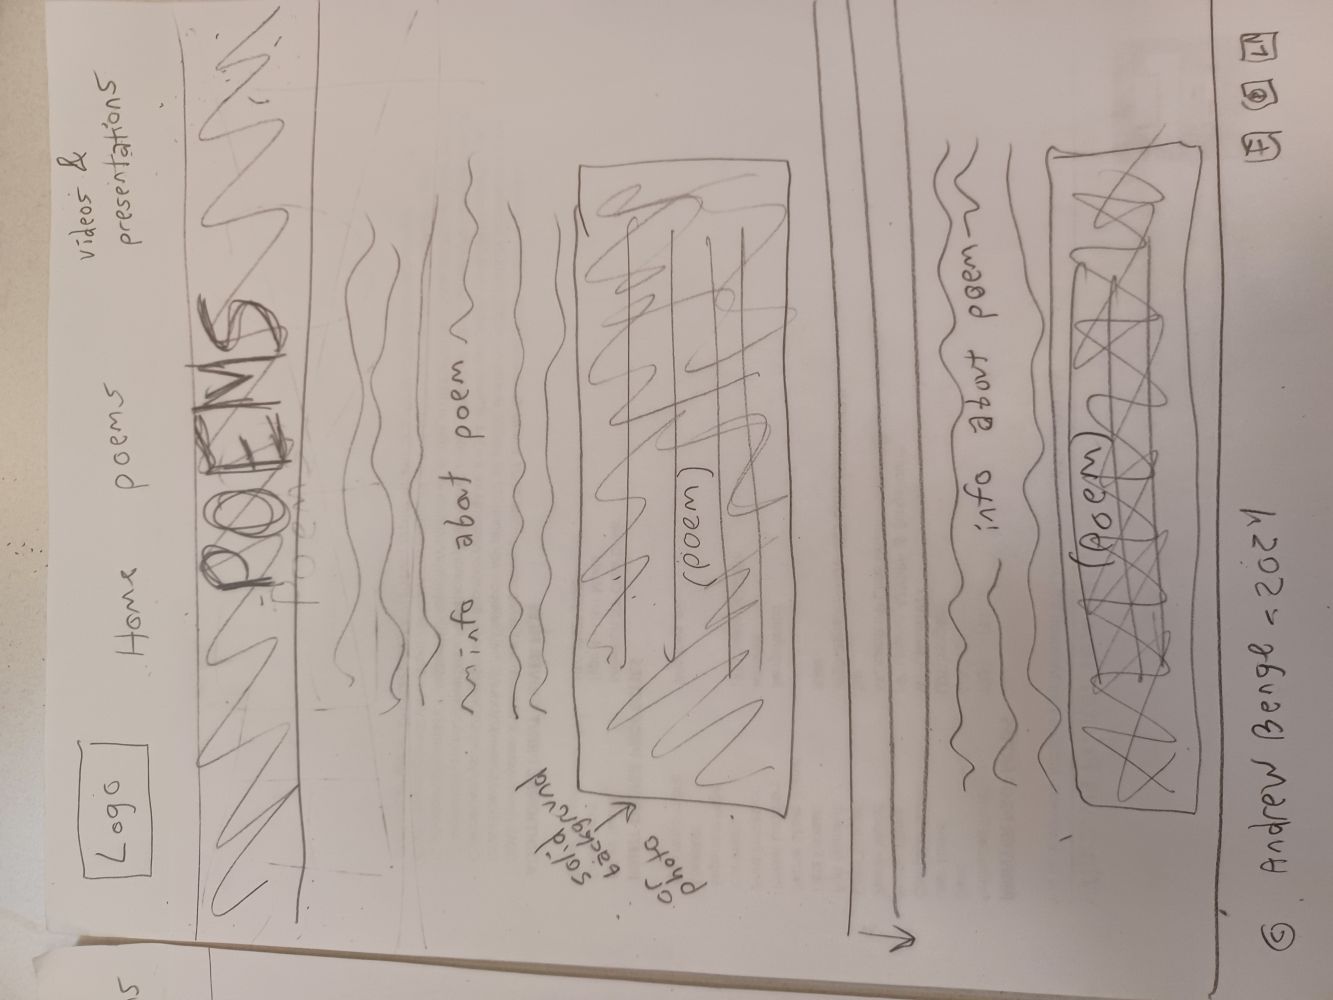 Logo
Home
poems
videos &
presentations
POEMS
Poem
info about poem
solid
background
or
photo
(poem)
info about poem
(poem)
© Andrew Benge - 2024
F
LN